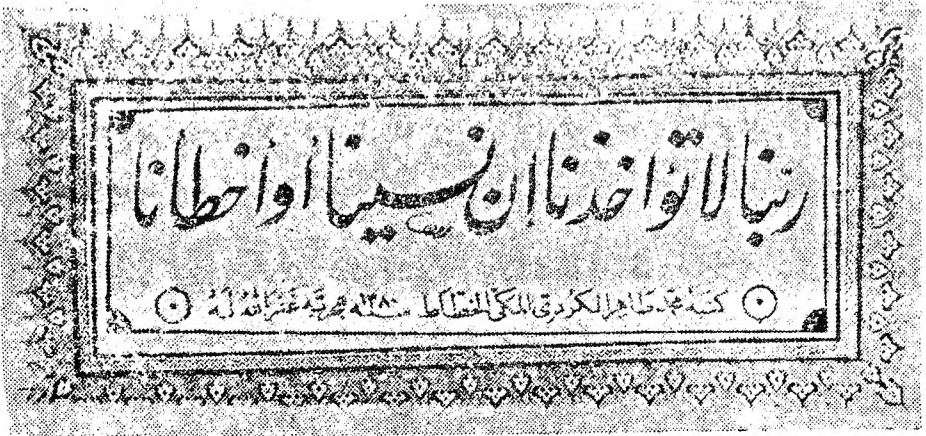 ربنا لا تؤاخذنا إن نسينا أو أخطأنا
كتبه محمد طاهر الكردي المكي الخطاط سنة ١٣٨٠ هجرية غفر الله له